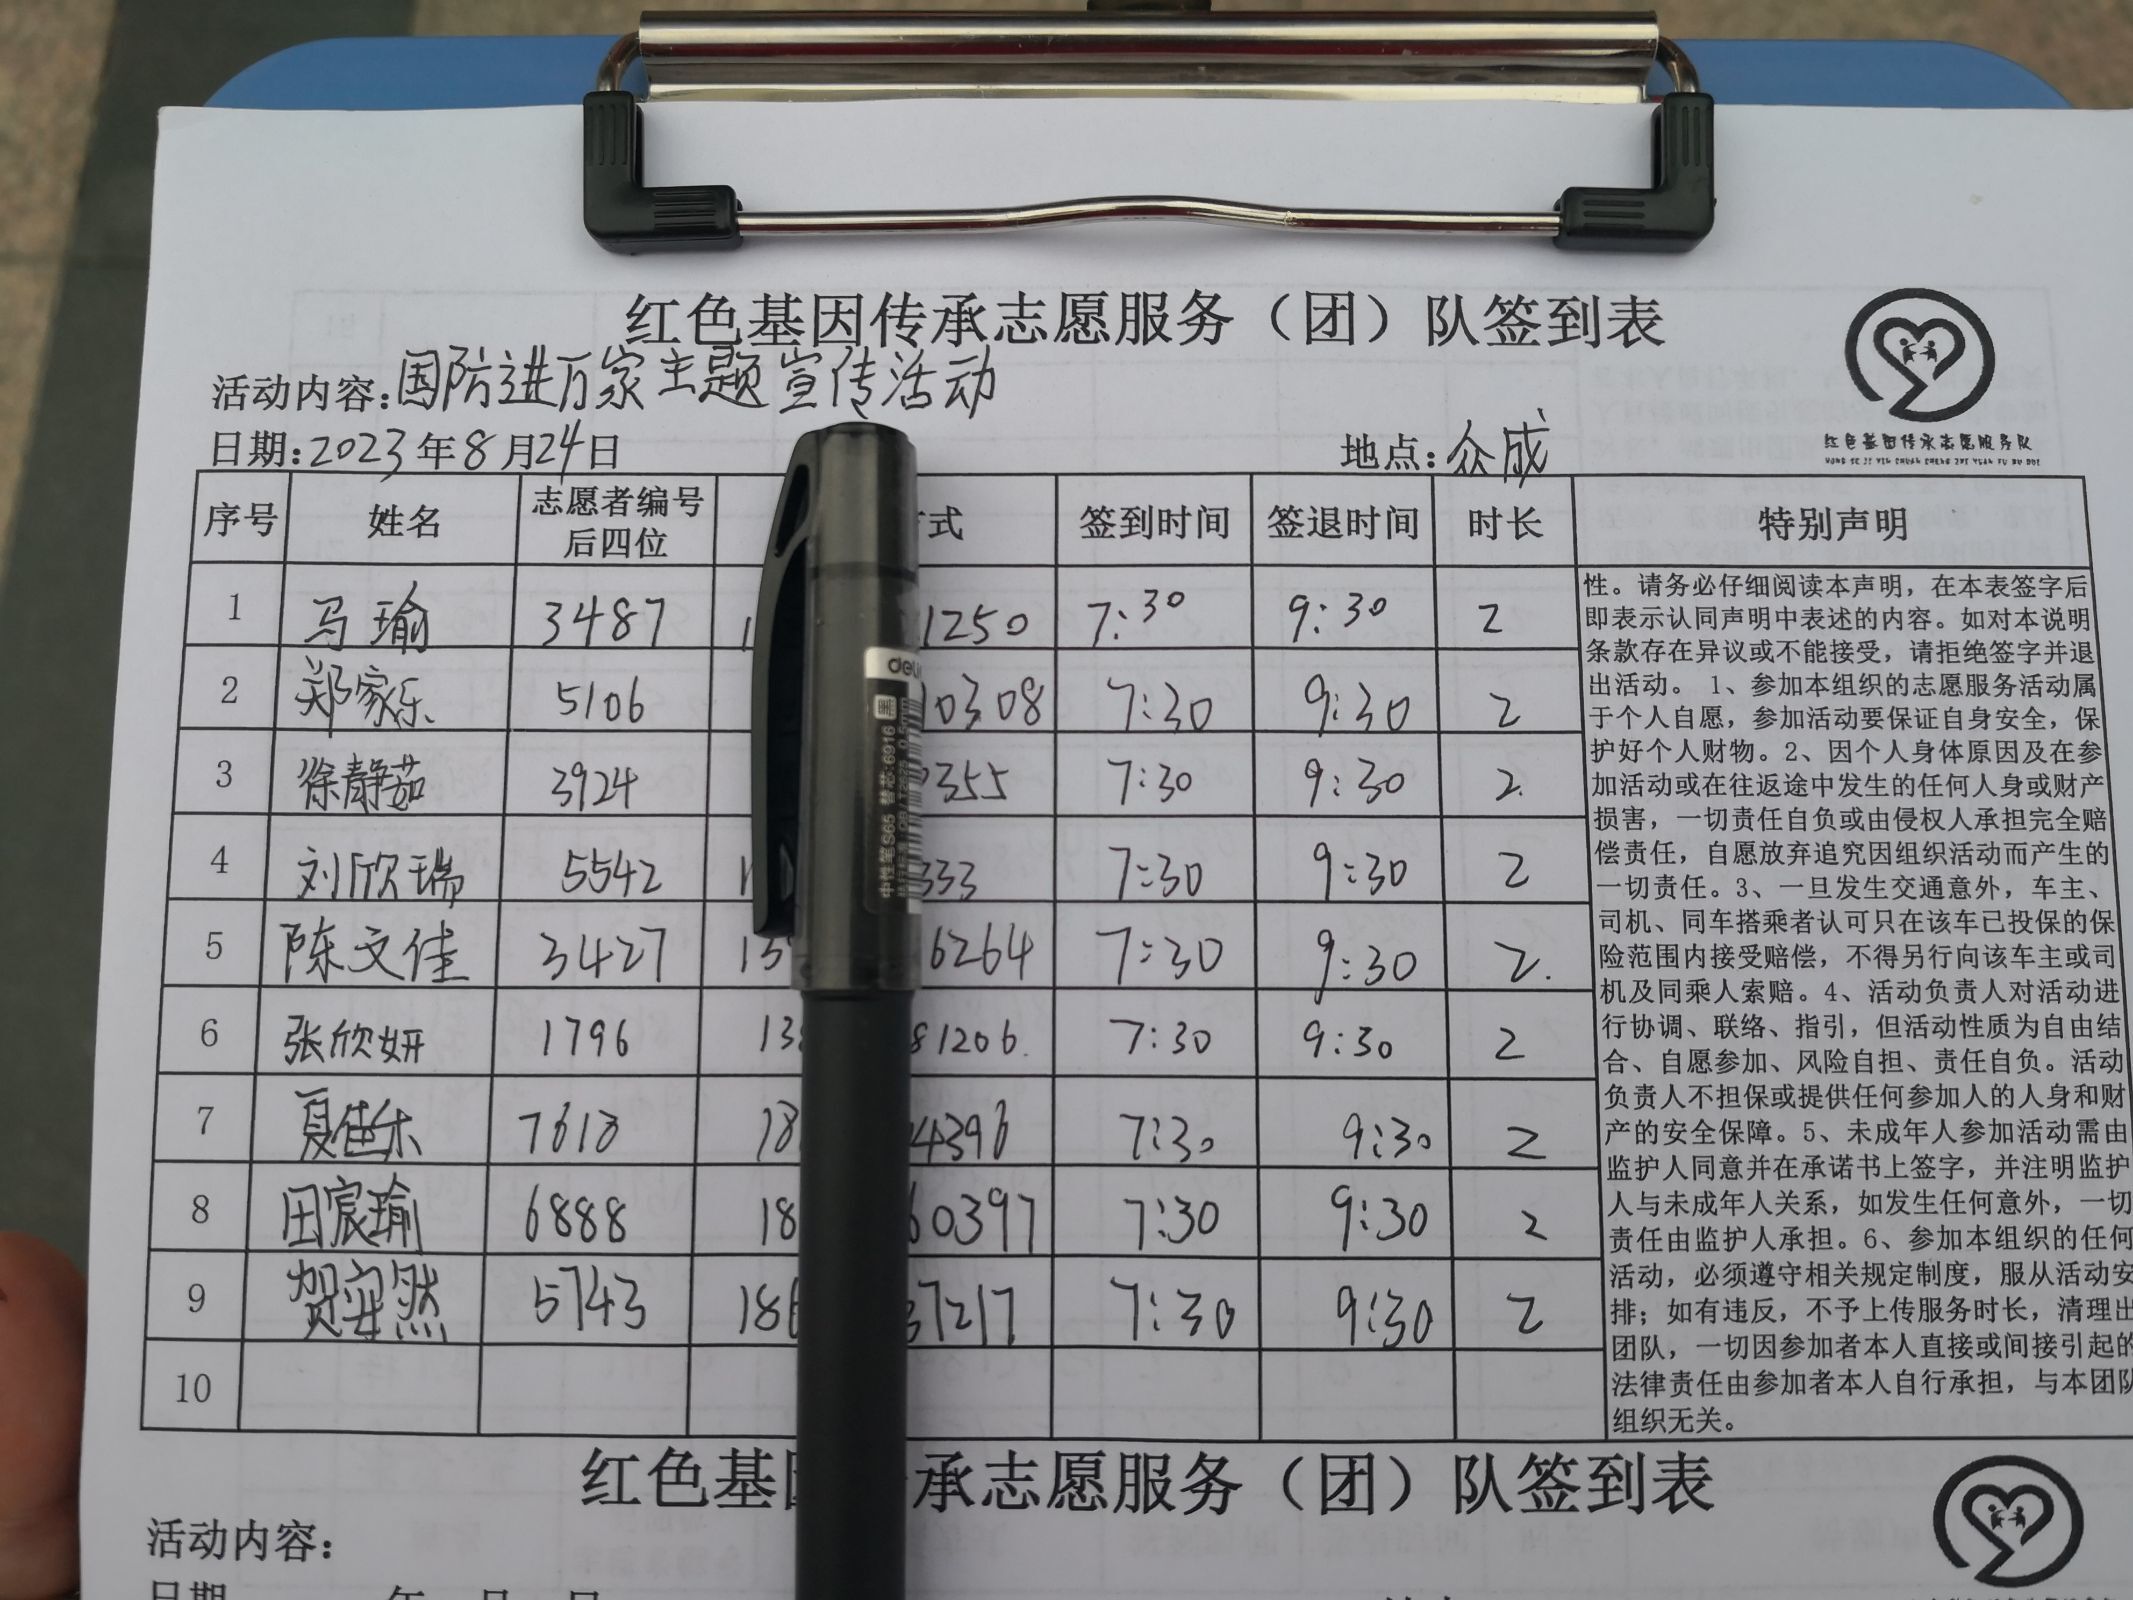 红色基因传承志愿服务（团）队签到表
活动内容:国防进万家主题宣传活动
日期:2023年8月24日 地点:众成
红色基因传承志愿服务队
HONG SE JI YIN CHUAN CHENG ZHI YUAN FU WU DUI
序号 姓名 志愿者编号后四位 式 签到时间 签退时间 时长 特别声明
1 马瑜 3487 1 1250 7:30 9:30 2
2 郑家乐 5106 10308 7:30 9:30 2
3 徐静茹 3924 355 7:30 9:30 2.
4 刘欣瑞 5542 1 333 7:30 9:30 2
5 陈文佳 3427 13 6264 7:30 9:30 2.
6 张欣妍 1796 13 81206. 7:30 9:30 2
7 夏佳乐 7618 18 4396 7:30 9:30 2
8 田宸瑜 6888 18 60397 7:30 9:30 2
9 贺安然 5743 186 37217 7:30 9:30 2
10
性。请务必仔细阅读本声明，在本表签字后
即表示认同声明中表述的内容。如对本说明
条款存在异议或不能接受，请拒绝签字并退
出活动。1、参加本组织的志愿服务活动属
于个人自愿，参加活动要保证自身安全，保
护好个人财物。2、因个人身体原因及在参
加活动或在往返途中发生的任何人身或财产
损害，一切责任自负或由侵权人承担完全赔
偿责任，自愿放弃追究因组织活动而产生的
一切责任。3、一旦发生交通意外，车主、
司机、同车搭乘者认可只在该车已投保的保
险范围内接受赔偿，不得另行向该车主或司
机及同乘人索赔。4、活动负责人对活动进
行协调、联络、指引，但活动性质为自由结
合、自愿参加、风险自担、责任自负。活动
负责人不担保或提供任何参加人的人身和财
产的安全保障。5、未成年人参加活动需由
监护人同意并在承诺书上签字，并注明监护
人与未成年人关系，如发生任何意外，一切
责任由监护人承担。6、参加本组织的任何
活动，必须遵守相关规定制度，服从活动安
排；如有违反，不予上传服务时长，清理出
团队，一切因参加者本人直接或间接引起的
法律责任由参加者本人自行承担，与本团队
组织无关。
deli
黑
中性笔S65 替芯:6916
执行标准:QB/T2625 0.5mm
红色基 承志愿服务（团）队签到表
活动内容:
日期 年 月 日